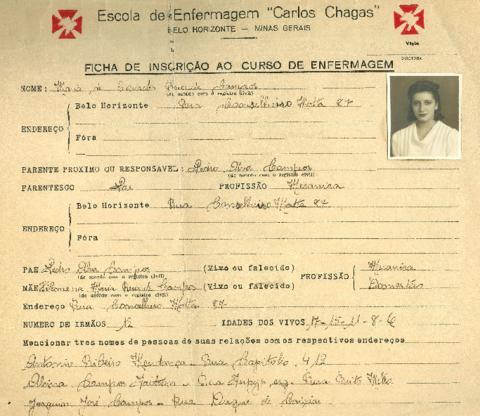 Escola de Enfermagem "Carlos Chagas"
BELO HORIZONTE — MINAS GERAIS
Visto
DIRETORA
FICHA DE INSCRIÇÃO AO CURSO DE ENFERMAGEM
NOME: Maria de Campos
(de acordo com o registro civil)
Belo Horizonte Rua Conselheiro Mata 87
ENDEREÇO
Fóra
PARENTE PROXIMO OU RESPONSAVEL: Pedro Alva Campos
(de acordo com o registro civil)
PARENTESCO Pae PROFISSÃO Mecanico
Belo Horizonte Rua Conselheiro Mata 87
ENDEREÇO
Fóra
PAE Pedro Alva Campos (Vivo ou falecido) PROFISSÃO
(de acordo com o registro civil)
MÃE Filomena Maria Campos (Vivo ou falecido) Domestica
(de acordo com o registro civil)
Endereço Rua Conselheiro Matta 87
NUMERO DE IRMÃOS 12 IDADES DOS VIVOS 17-15-11-8-6
Mencionar três nomes de pessoas de suas relações com os respectivos endereços
Antonio Ribeiro Mendonça - Rua Capitolio 412
Campos - Rua esq. Rua
Joaquim José Campos - Rua Duque de Caxias